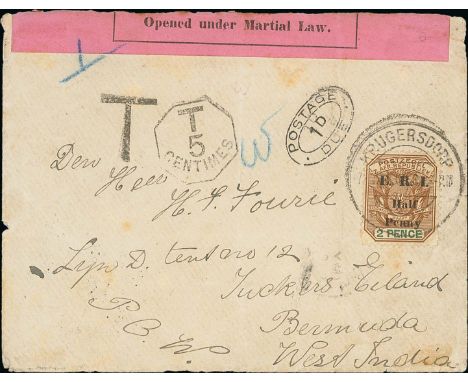 Opened under Martial Law.
T
T
5
CENTIMES
POSTAGE
1D
DUE
KRUGERSDORP
POSTZEGEL
E. R. I.
Half
Penny
2 PENCE
Den
Heer
H. S. Fourie
Lijn D. tent no 12
Tuckers Eiland
Bermuda
West India